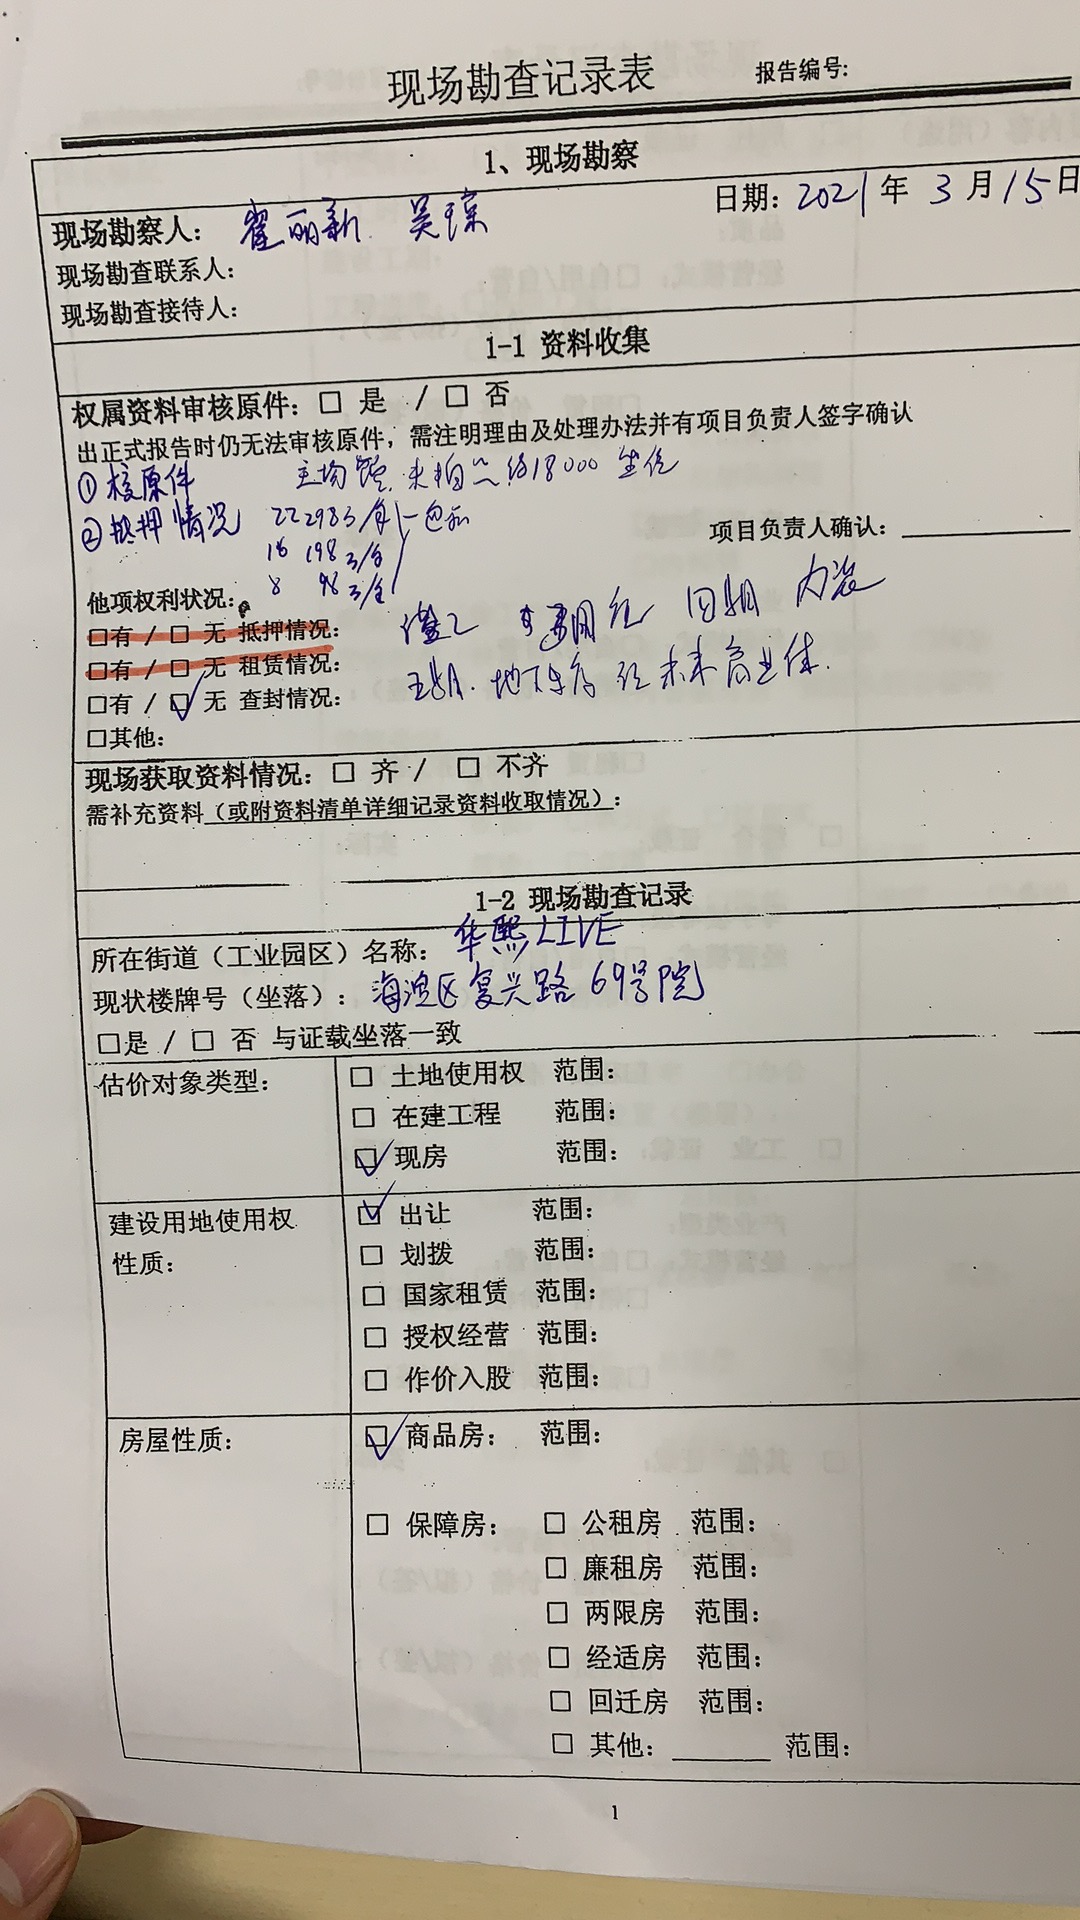 现场勘查记录表 报告编号:
1、现场勘察
日期: 2021 年 3 月 15 日
现场勘察人: 翟丽新 吴
现场勘查联系人:
现场勘查接待人:
1-1 资料收集
权属资料审核原件: □ 是 / □ 否
出正式报告时仍无法审核原件, 需注明理由及处理办法并有项目负责人签字确认
①核原件 主场馆 约18000 坐位
②抵押情况 22 298万/ 包
项目负责人确认: ________
16 198万/
8 98万/
他项权利状况:
□有 / □ 无 抵押情况:
□有 / □ 无 租赁情况:
地下车库 未来商业体.
□有 / ☑ 无 查封情况:
□其他:
现场获取资料情况: □ 齐 / □ 不齐
需补充资料(或附资料清单详细记录资料收取情况):
1-2 现场勘查记录
所在街道(工业园区)名称: 华熙LIVE
现状楼牌号(坐落): 海淀区复兴路69号院
□是 / □ 否 与证载坐落一致
估价对象类型:
□ 土地使用权 范围:
□ 在建工程 范围:
☑ 现房 范围:
建设用地使用权
性质:
☑ 出让 范围:
□ 划拨 范围:
□ 国家租赁 范围:
□ 授权经营 范围:
□ 作价入股 范围:
房屋性质:
☑ 商品房: 范围:
□ 保障房: □ 公租房 范围:
□ 廉租房 范围:
□ 两限房 范围:
□ 经适房 范围:
□ 回迁房 范围:
□ 其他: ______ 范围:
1